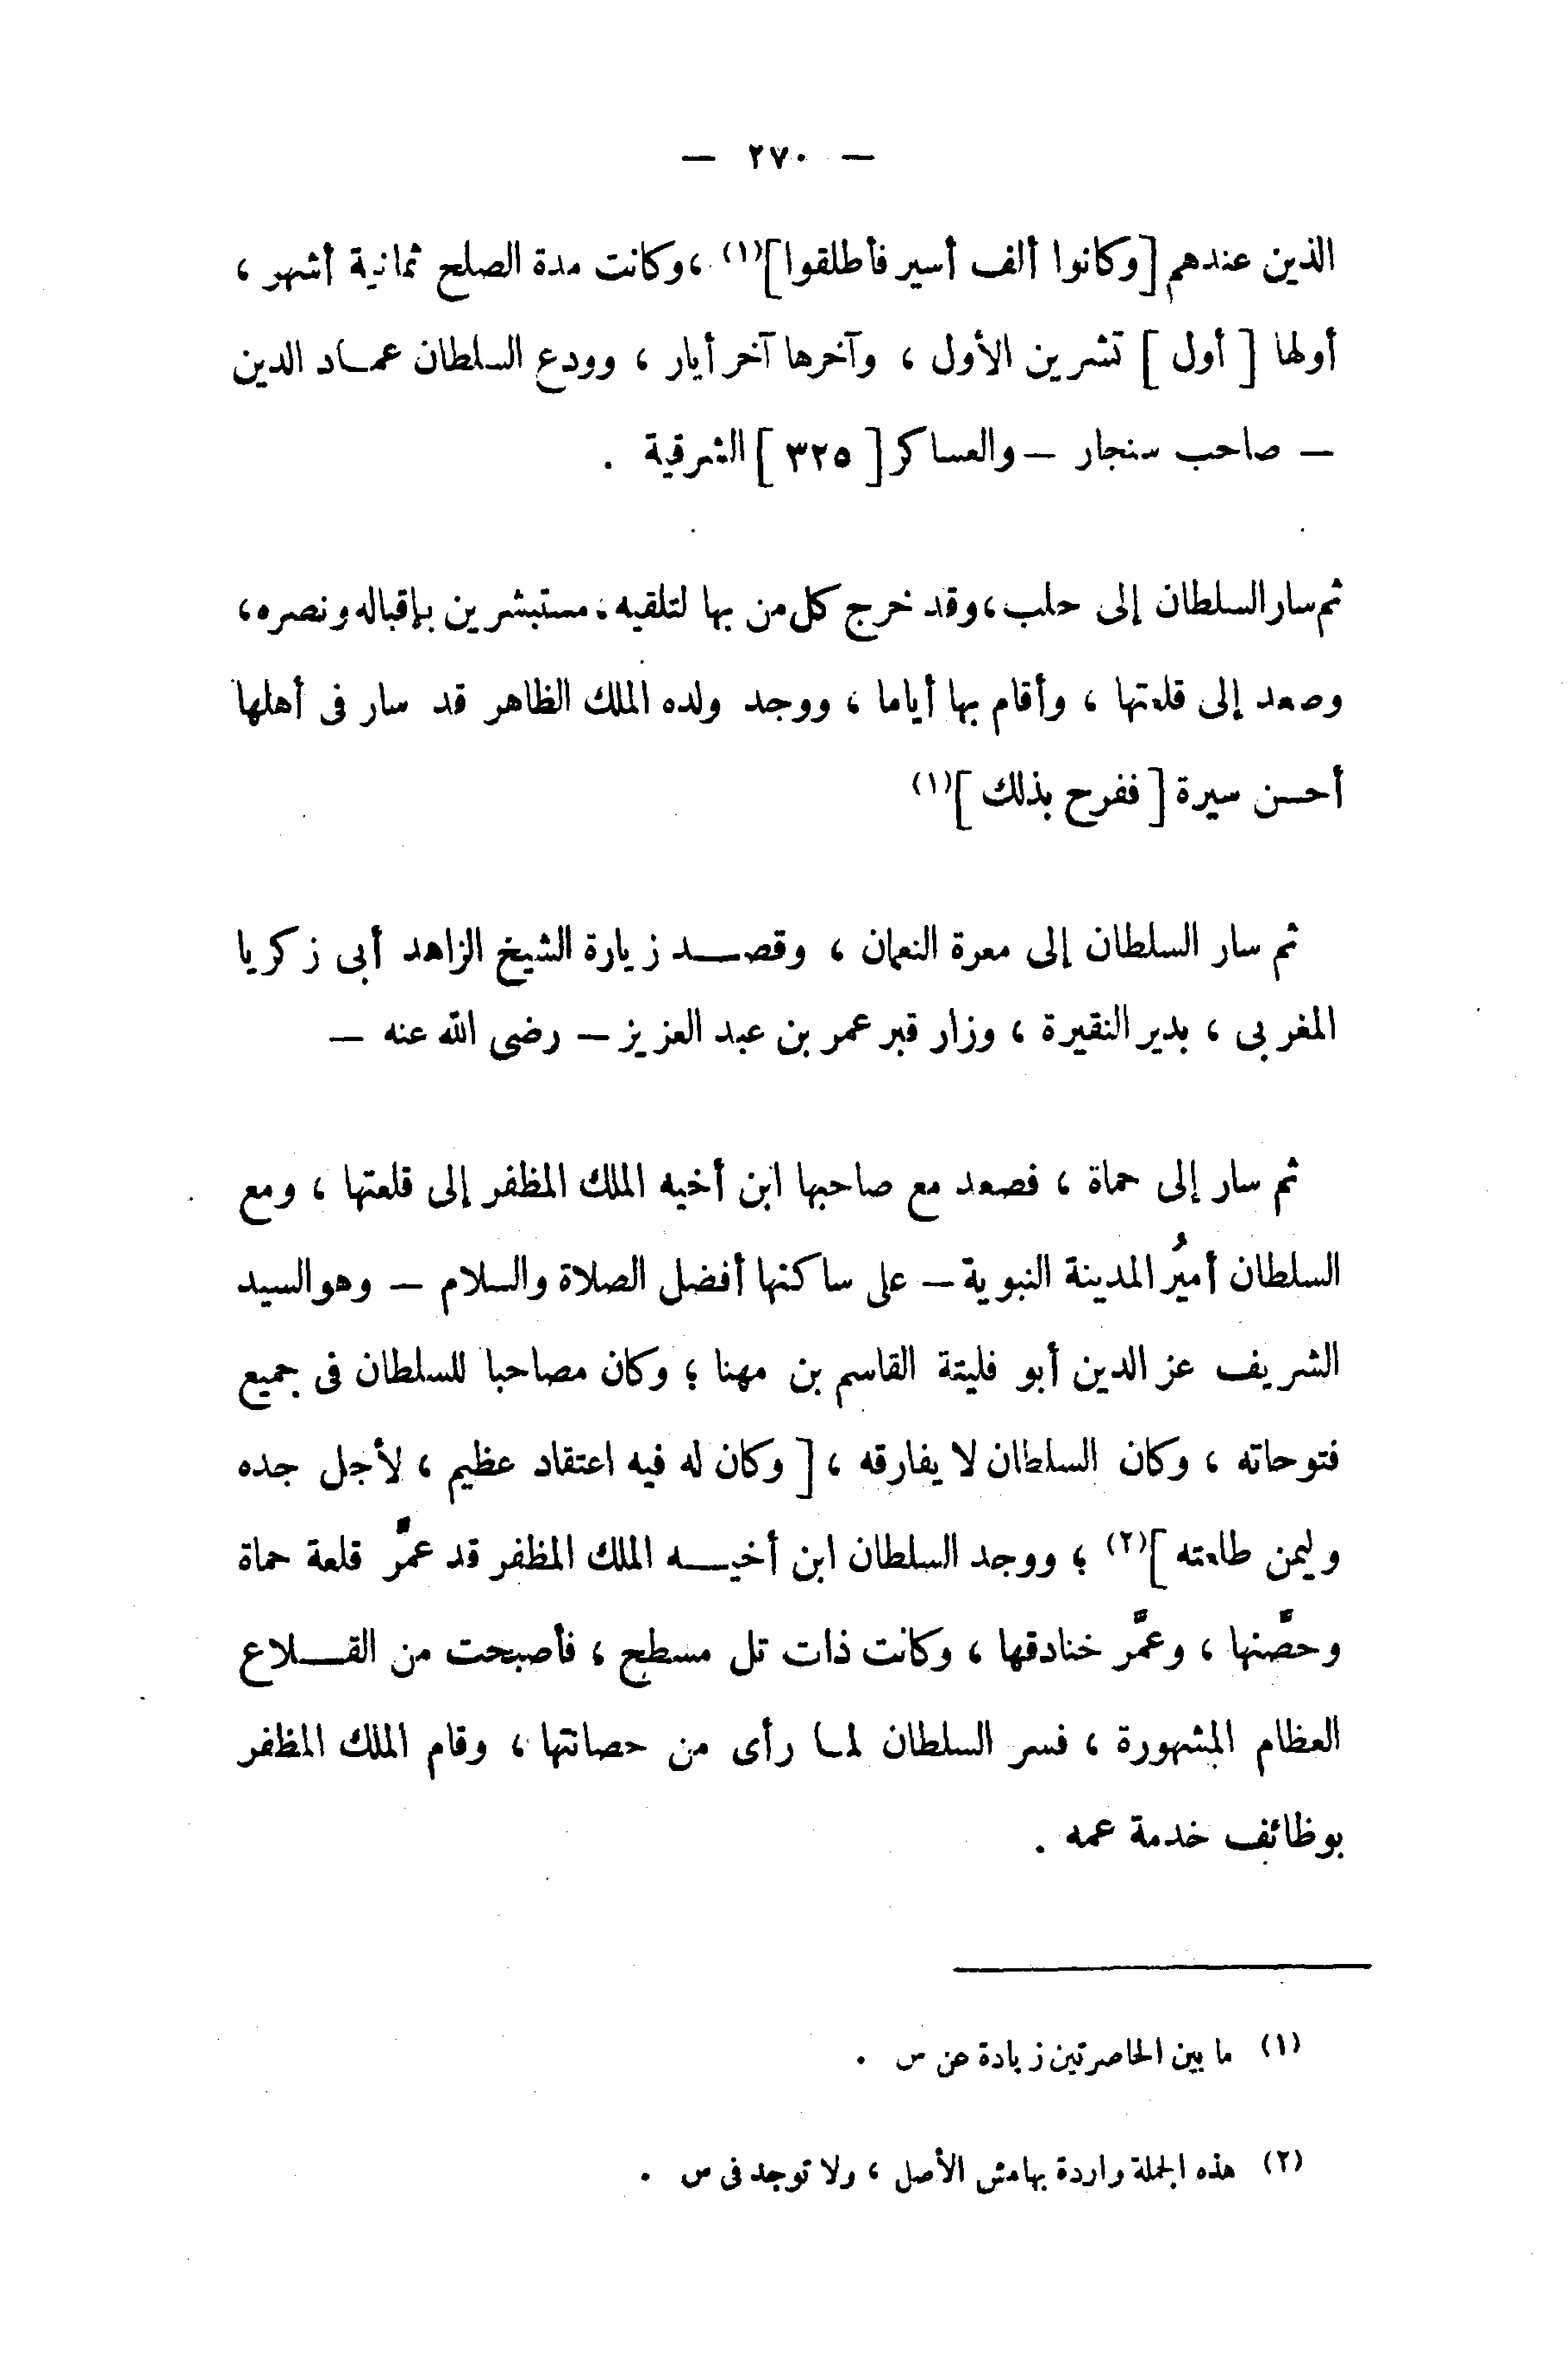 — ٢٧٠ —
الذين عندهم [وكانوا ألف أسير فأطلقوا](١) ، وكانت مدة الصلح ثمانية أشهر ،
أولها [ أول ] تشرين الأول ، وآخرها آخر أيار ، وودع السلطان عماد الدين
— صاحب سنجار — والعساكر [ ٣٢٥ ] الشرقية .
ثم سار السلطان إلى حلب ، وقد خرج كل من بها لتلقيه ، مستبشرين بإقباله ونصره ،
وصعد إلى قلعتها ، وأقام بها أياما ، ووجد ولده الملك الظاهر قد سار فى أهلها
أحسن سيرة [ ففرح بذلك ](١)
ثم سار السلطان إلى معرة النعمان ، وقصد زيارة الشيخ الزاهد أبى زكريا
المغربى ، بدير النقيرة ، وزار قبر عمر بن عبد العزيز — رضى الله عنه —
ثم سار إلى حماة ، فصعد مع صاحبها ابن أخيه الملك المظفر إلى قلعتها ، ومع
السلطان أميرُ المدينة النبوية — على ساكنها أفضل الصلاة والسلام — وهو السيد
الشريف عز الدين أبو فليتة القاسم بن مهنا ؛ وكان مصاحبا للسلطان فى جميع
فتوحاته ، وكان السلطان لا يفارقه ، [ وكان له فيه اعتقاد عظيم ، لأجل جده
وليمن طلعته ](٢) ؛ ووجد السلطان ابن أخيه الملك المظفر قد عمَّر قلعة حماة
وحصَّنها ، وعمَّر خنادقها ، وكانت ذات تل مسطح ، فأصبحت من القلاع
العظام المشهورة ، فسر السلطان لما رأى من حصانتها ، وقام الملك المظفر
بوظائف خدمة عمه .
(١) ما بين الحاصرتين زيادة عن س .
(٢) هذه الجملة واردة بهامش الأصل ، ولا توجد فى س .